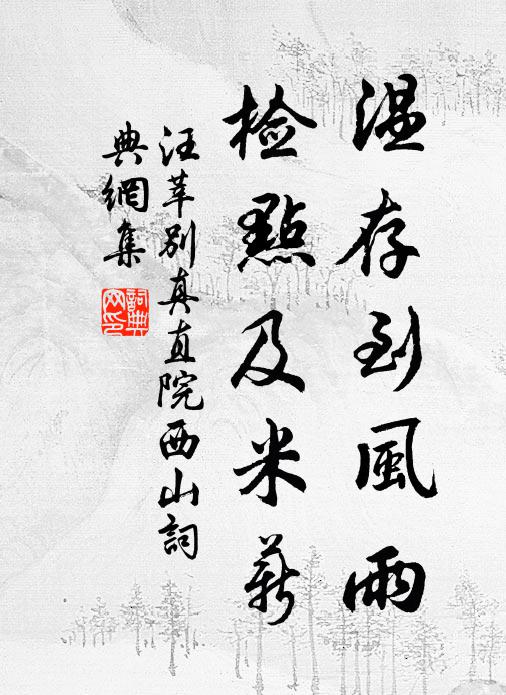 温存到風雨
檢點及米薪
汪莘別真直院西山詞
典網集
詞典
网印